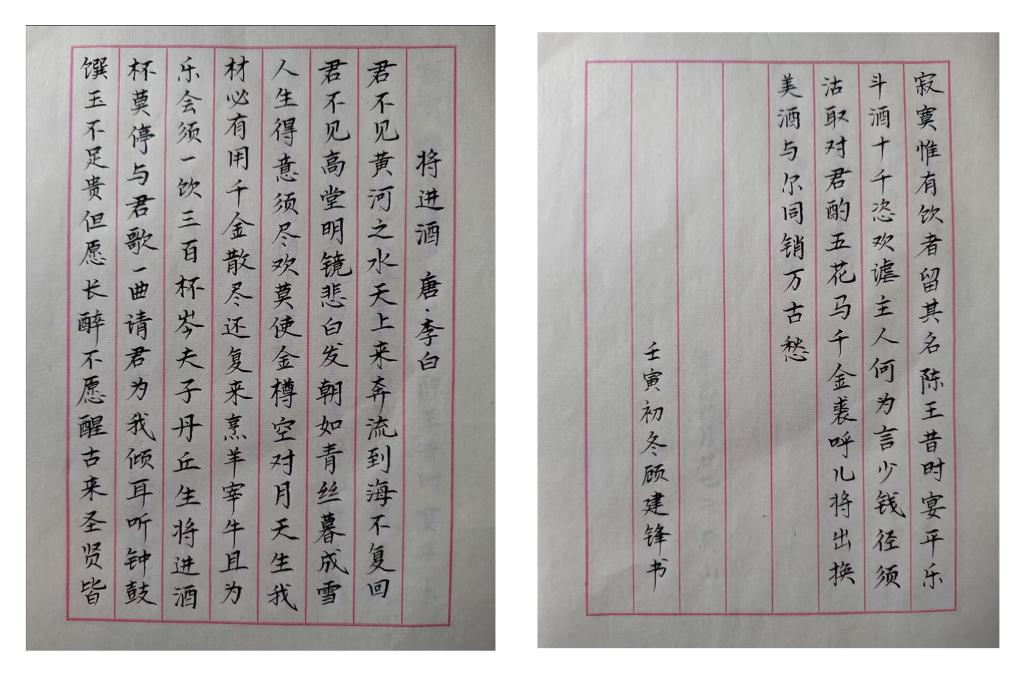 将进酒 唐·李白
君不见黄河之水天上来奔流到海不复回
君不见高堂明镜悲白发朝如青丝暮成雪
人生得意须尽欢莫使金樽空对月天生我
材必有用千金散尽还复来烹羊宰牛且为
乐会须一饮三百杯岑夫子丹丘生将进酒
杯莫停与君歌一曲请君为我倾耳听钟鼓
馔玉不足贵但愿长醉不愿醒古来圣贤皆
寂寞惟有饮者留其名陈王昔时宴平乐
斗酒十千恣欢谑主人何为言少钱径须
沽取对君酌五花马千金裘呼儿将出换
美酒与尔同销万古愁
壬寅初冬顾建锋书